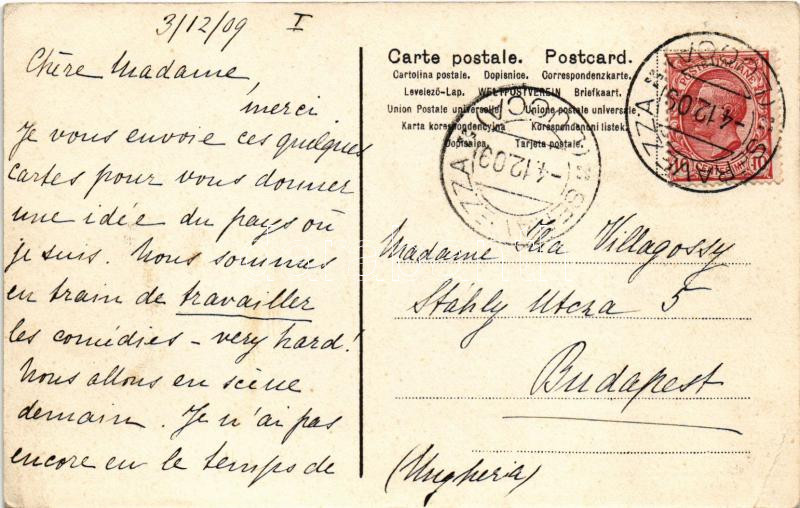 3/12/09 I
Chère Madame,
merci
Je vous envoie ces quelques
cartes pour vous donner
une idée du pays où
je suis. Nous sommes
en train de travailler
les comédies - very hard!
Nous allons en scène
demain. Je n'ai pas
encore eu le temps de
Carte postale. Postcard.
Cartolina postale. Dopisnice. Correspondenzkarte.
Levelező-Lap. WELTPOSTVEREIN Briefkaart.
Union Postale universelle. Unione postale universale
Karta korespondencyjna Korespondenční listek.
Dopisnica. Tarjeta postale.
Madame Villagossy
Stáhly Utcza 5
Budapest
(Ungheria)
POSTE ITALIANE
-4.12.09
-4.12.09